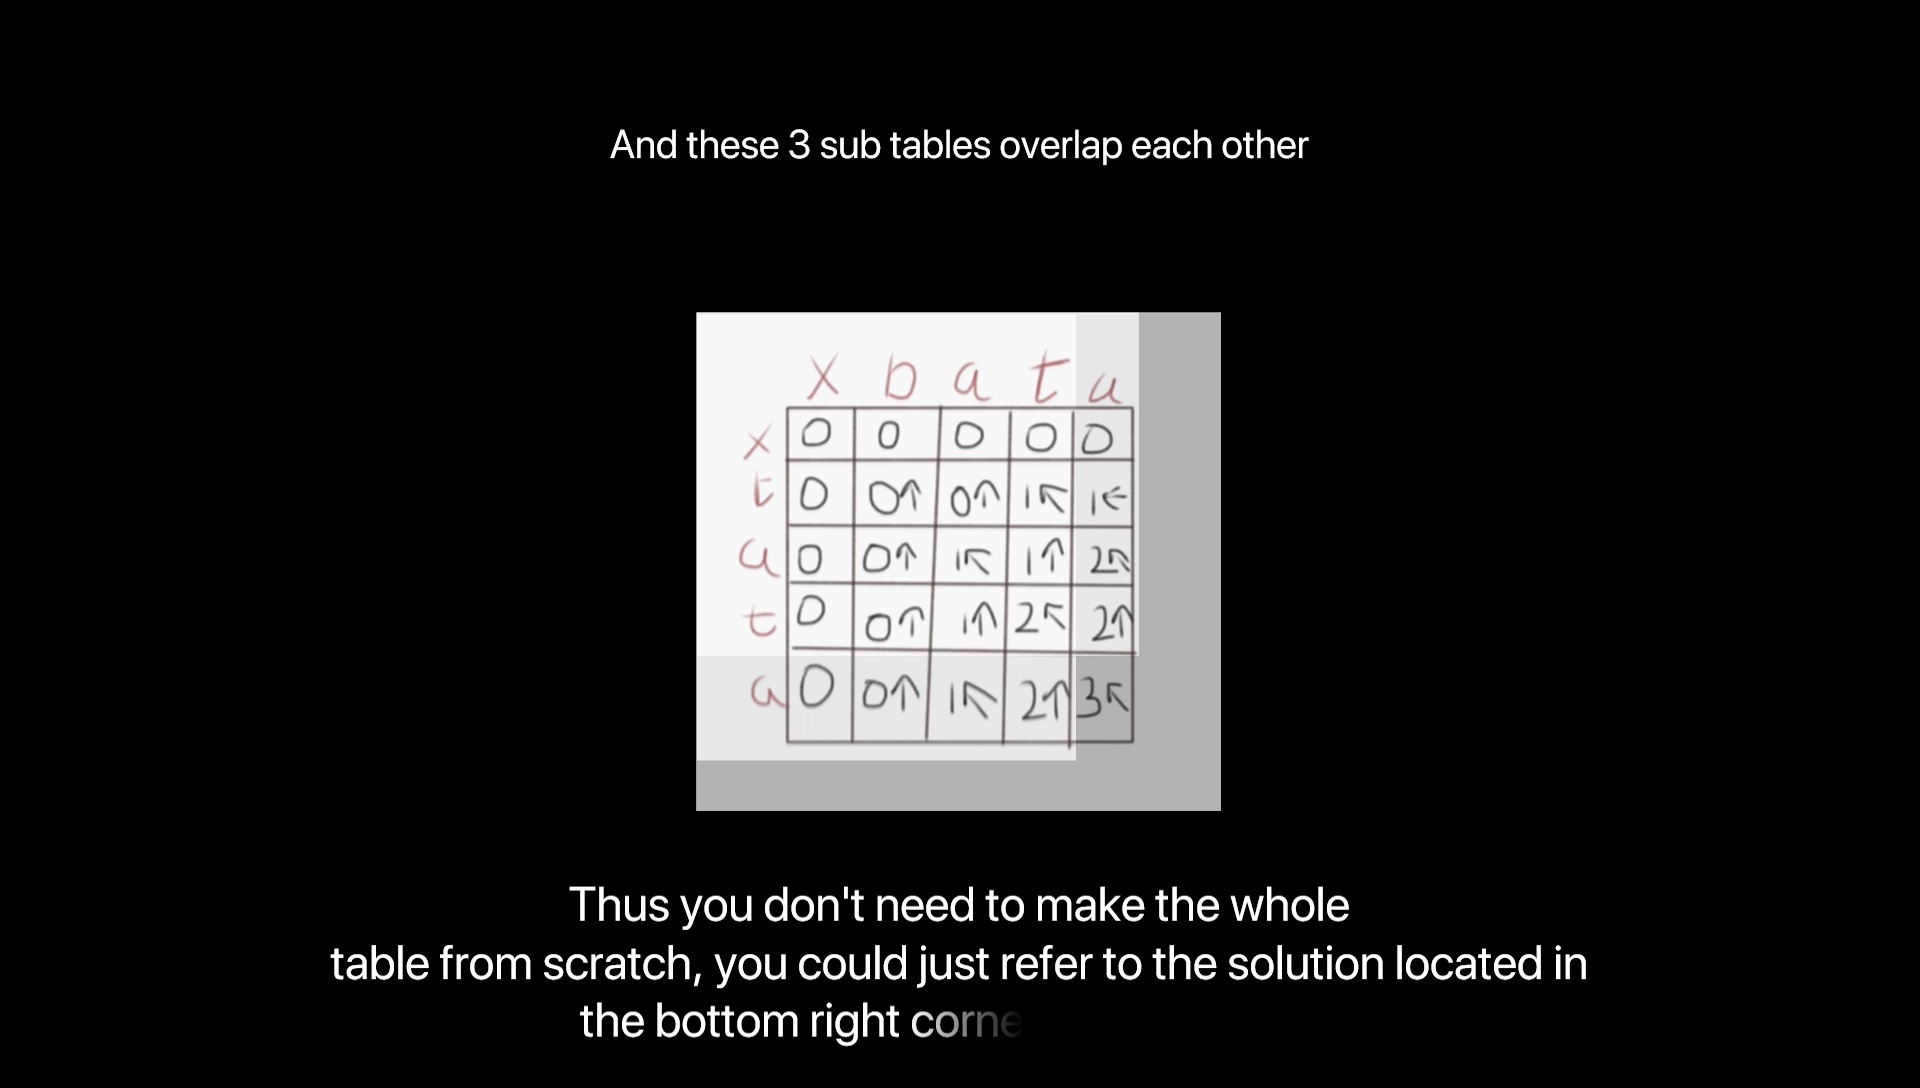 And these 3 sub tables overlap each other
x b a t a
x 0 0 0 0 0
t 0 0↑ 0↑ 1↖ 1←
a 0 0↑ 1↖ 1↑ 2↖
t 0 0↑ 1↑ 2↖ 2↑
a 0 0↑ 1↖ 2↑ 3↖
Thus you don't need to make the whole
table from scratch, you could just refer to the solution located in
the bottom right corne